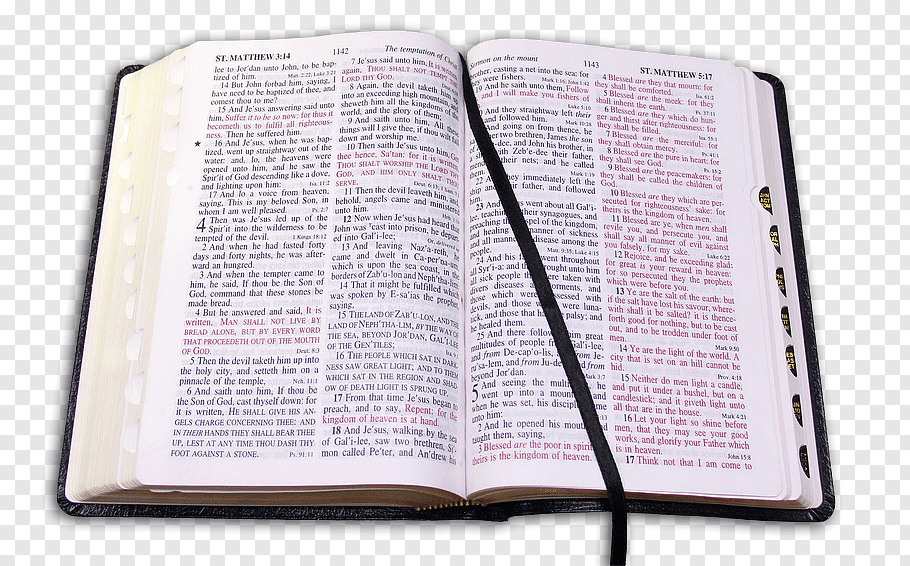 ST. MATTHEW 3:14
1142
The temptation of
lee to Jordan unto John, to be bap-
tized of him. Matt. 2:22; Luke 3:21
14 But John forbad him, saying, I
have need to be baptized of thee, and
comest thou to me?
15 And Je'sus answering said unto
him, Suffer it to be so now: for thus it
becometh us to fulfil all righteous-
ness. Then he suffered him.
★ 16 And Je'sus, when he was bap-
tized, went up straightway out of the
water: and, lo, the heavens were
opened unto him, and he saw the
Spir'it of God descending like a dove,
and lighting upon him: Isa. 11:2
17 And lo a voice from heaven,
saying, This is my beloved Son, in
whom I am well pleased. Ps. 2:7
4 Then was Je'sus led up of the
Spir'it into the wilderness to be
tempted of the devil. 1 Kings 18:12
2 And when he had fasted forty
days and forty nights, he was after-
ward an hungred.
3 And when the tempter came to
him, he said, If thou be the Son of
God, command that these stones be
made bread.
4 But he answered and said, It is
written, MAN SHALL NOT LIVE BY
BREAD ALONE, BUT BY EVERY WORD
THAT PROCEEDETH OUT OF THE MOUTH
OF GOD. Deut. 8:3
5 Then the devil taketh him up into
the holy city, and setteth him on a
pinnacle of the temple, Neh. 11:1
6 And saith unto him, If thou be
the Son of God, cast thyself down: for
it is written, HE SHALL GIVE HIS AN-
GELS CHARGE CONCERNING THEE: AND
IN THEIR HANDS THEY SHALL BEAR THEE
UP, LEST AT ANY TIME THOU DASH THY
FOOT AGAINST A STONE. Ps. 91:11
7 Je'sus said unto him, It is written
again, THOU SHALT NOT TEMPT
LORD THY GOD.
8 Again, the devil taketh him up
into an exceeding high mountain,
sheweth him all the kingdoms of
world, and the glory of them;
9 And saith unto him, All these
things will I give thee, if thou wilt
down and worship me.
10 Then saith Je'sus unto him,
thee hence, Sa'tan: for it is written,
THOU SHALT WORSHIP THE LORD THY
GOD, AND HIM ONLY SHALT THOU
SERVE. Deut. 6:13
11 Then the devil leaveth him, and,
behold, angels came and ministered
unto him.
12 Now when Je'sus had heard that
John was cast into prison, he depart-
ed into Gal'i-lee;
13 And leaving Naz'a-reth, he
came and dwelt in Ca-per'na-um,
which is upon the sea coast, in the
borders of Zab'u-lon and Neph'tha-lim:
14 That it might be fulfilled which
was spoken by E-sa'ias the prophet,
saying,
15 THE LAND OF ZAB'U-LON, AND THE
LAND OF NEPH'THA-LIM, BY THE WAY OF
THE SEA, BEYOND JOR'DAN, GAL'I-LEE
OF THE GEN'TILES;
16 THE PEOPLE WHICH SAT IN DARK-
NESS SAW GREAT LIGHT; AND TO THEM
WHICH SAT IN THE REGION AND SHAD-
OW OF DEATH LIGHT IS SPRUNG UP.
17 From that time Je'sus began to
preach, and to say, Repent: for the
kingdom of heaven is at hand.
18 And Je'sus, walking by the sea
of Gal'i-lee, saw two brethren, Si'-
mon called Pe'ter, and An'drew his
Sermon on the mount
1143
ST. MATTHEW 5:17
brother, casting a net into the sea: for
they were fishers. Mark 1:16; John 1:42
19 And he saith unto them, Follow
me, and I will make you fishers of
men. Luke 5:10
they straightway left their
and followed him. Mark 10:28
21 And going on from thence, he
two brethren, James the son
Zeb'e-dee their father,
their nets; and he called
them.
22 And they immediately left the
ship and their father, and followed
him.
23 And went about all Gal'i-
lee, teaching their synagogues, and
preaching the gospel of the kingdom,
and healing all manner of sickness
and all manner of disease among the
people. Matt. 9:35
24 And his fame went throughout
all Syr'i-a: and they brought unto him
all sick people that were taken with
divers diseases and torments, and
those which were possessed with
devils, and those which were luna-
tick, and those that had the palsy; and
he healed them.
25 And there followed him great
multitudes of people from Gal'i-lee,
and from De-cap'o-lis, and from Je-
ru'sa-lem, and from Ju-de'a, and from
beyond Jor'dan.
5 And seeing the multitudes, he
went up into a mountain: and
when he was set, his disciples came
unto him:
2 And he opened his mouth, and
taught them, saying,
3 Blessed are the poor in spirit: for
theirs is the kingdom of heaven.
4 Blessed are they that mourn: for
they shall be comforted. Isa. 61:2
5 Blessed are the meek: for they
shall inherit the earth. Ps. 37:11
6 Blessed are they which do hun-
ger and thirst after righteousness: for
they shall be filled. Isa. 55:1
7 Blessed are the merciful: for
they shall obtain mercy. Ps. 41:1
8 Blessed are the pure in heart: for
they shall see God. Ps. 15:2
9 Blessed are the peacemakers: for
they shall be called the children of
God.
10 Blessed are they which are per-
secuted for righteousness' sake: for
theirs is the kingdom of heaven.
11 Blessed are ye, when men shall
revile you, and persecute you, and
shall say all manner of evil against
you falsely, for my sake. Luke 6:22
12 Rejoice, and be exceeding glad:
for great is your reward in heaven:
for so persecuted they the prophets
which were before you.
13 Ye are the salt of the earth: but
if the salt have lost his savour, where-
with shall it be salted? it is thence-
forth good for nothing, but to be cast
out, and to be trodden under foot of
men. Mark 9:50
14 Ye are the light of the world. A
city that is set on an hill cannot be
hid. Prov. 4:18
15 Neither do men light a candle,
and put it under a bushel, but on a
candlestick; and it giveth light unto
all that are in the house. Mark 4:21
16 Let your light so shine before
men, that they may see your good
works, and glorify your Father which
is in heaven. John 15:8
17 Think not that I am come to